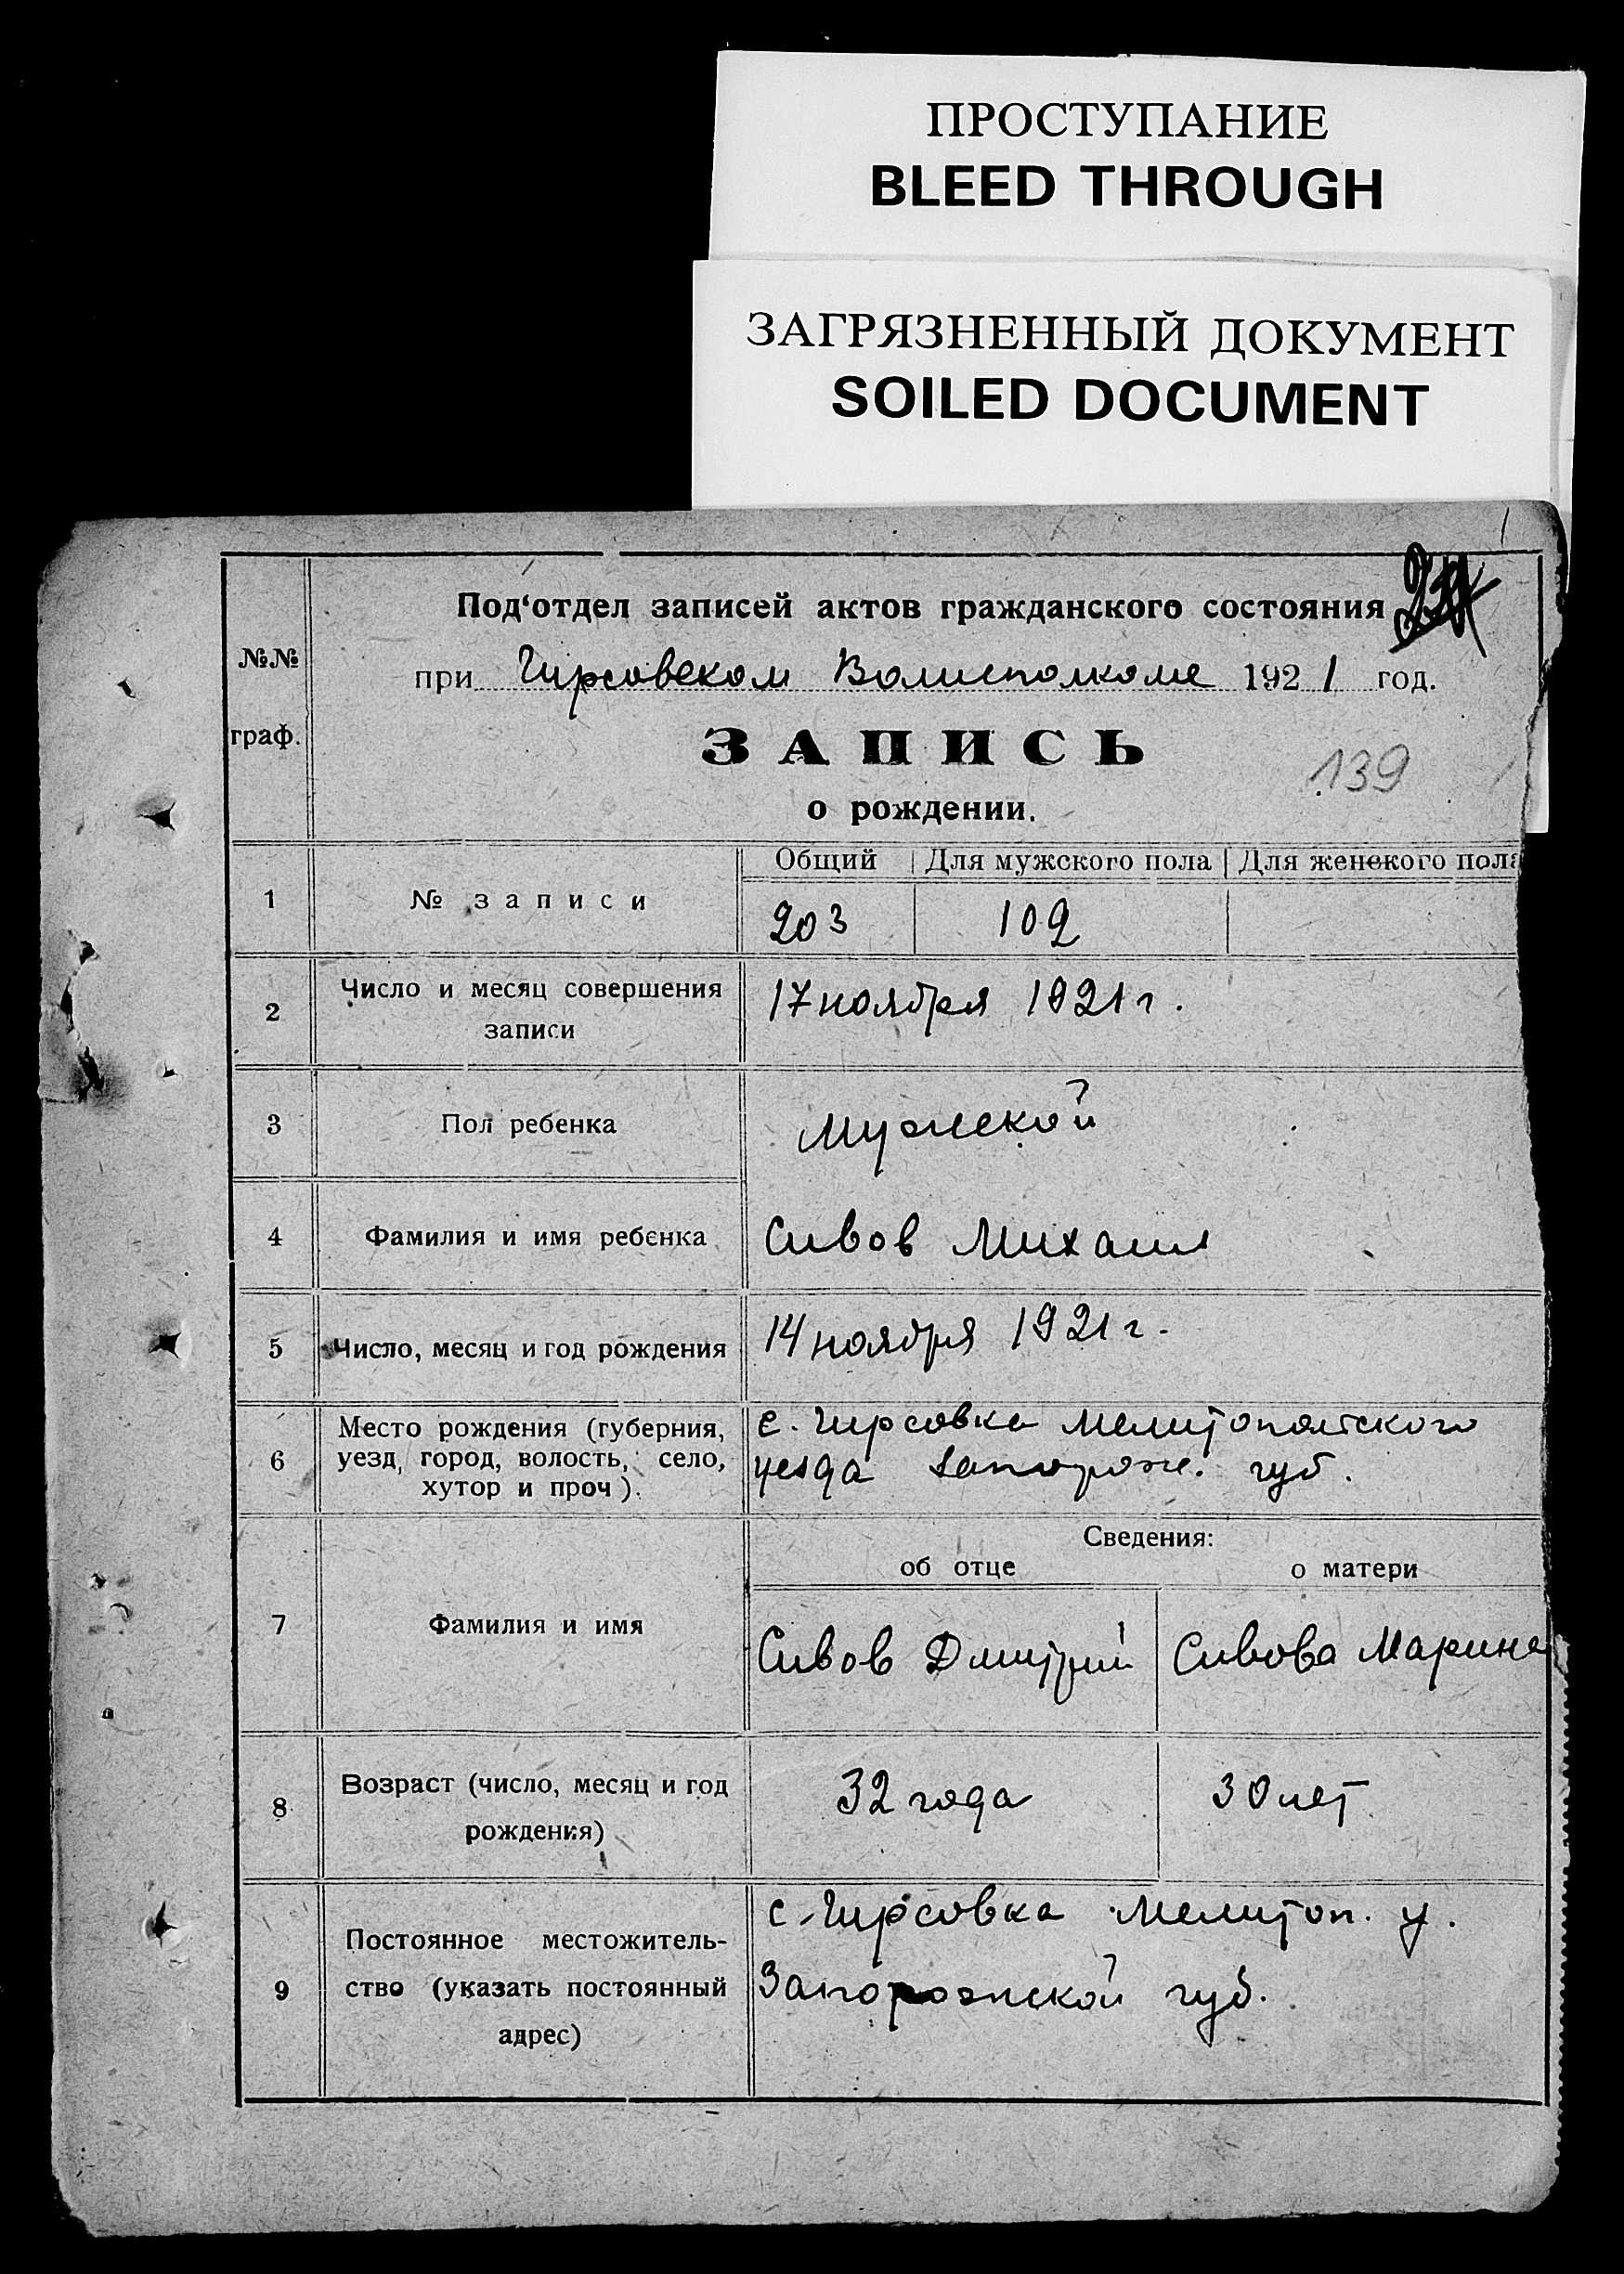 ПРОСТУПАНИЕ
BLEED THROUGH
ЗАГРЯЗНЕННЫЙ ДОКУМЕНТ
SOILED DOCUMENT
№№
граф.
Под‘отдел записей актов гражданского состояния
при Гирсовском Волисполкоме 1921 год.
ЗАПИСЬ
139
о рождении.
1
№ записи
Общий
Для мужского пола
Для женского пола
203
102
2
Число и месяц совершения
записи
17 ноября 1921 г.
3
Пол ребенка
мужской
4
Фамилия и имя ребенка
Сивов Михаил
5
Число, месяц и год рождения
14 ноября 1921 г.
6
Место рождения (губерния,
уезд, город, волость, село,
хутор и проч).
с. Гирсовка Мелитопольского
уезда Запорож. губ.
7
Фамилия и имя
Сведения:
об отце
о матери
Сивов Дмитрий
Сивова Марина
8
Возраст (число, месяц и год
рождения)
32 года
30 лет
9
Постоянное местожитель-
ство (указать постоянный
адрес)
с. Гирсовка Мелитоп. у.
Запорожской губ.